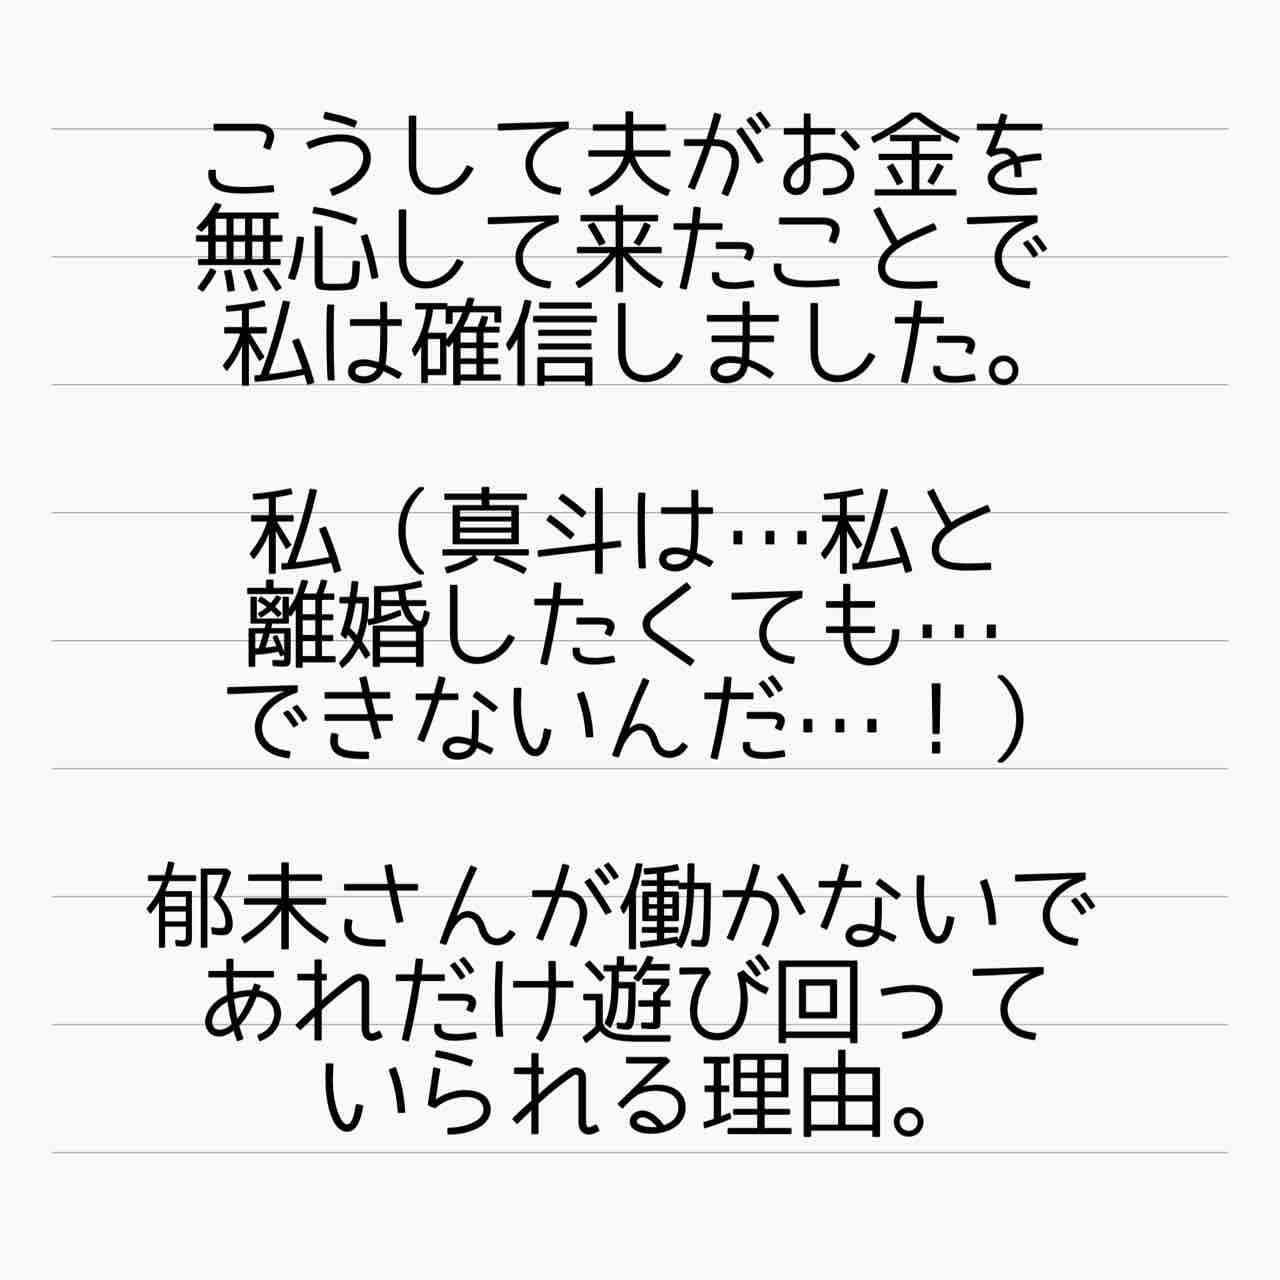 こうして夫がお金を
無心して来たことで
私は確信しました。
私（真斗は…私と
離婚したくても…
できないんだ…！）
郁未さんが働かないで
あれだけ遊び回って
いられる理由。